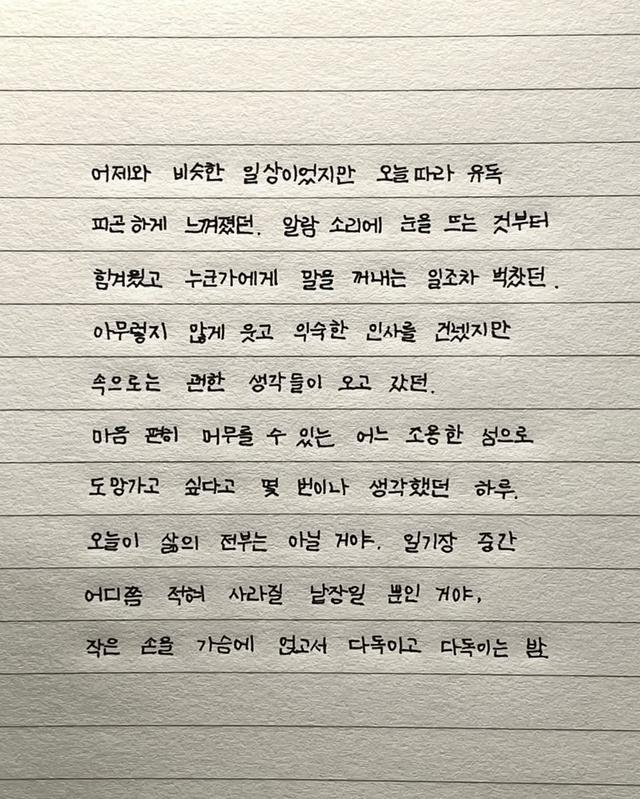 어제와 비슷한 일상이었지만 오늘따라 유독
피곤하게 느껴졌던. 알람 소리에 눈을 뜨는 것부터
힘겨웠고 누군가에게 말을 꺼내는 일조차 벅찼던.
아무렇지 않게 웃고 익숙한 인사를 건넸지만
속으로는 괜한 생각들이 오고 갔던.
마음 편히 머무를 수 있는 어느 조용한 섬으로
도망가고 싶다고 몇 번이나 생각했던 하루.
오늘이 삶의 전부는 아닐 거야. 일기장 중간
어디쯤 적혀 사라질 낱장일 뿐인 거야,
작은 손을 가슴에 얹고서 다독이고 다독이는 밤